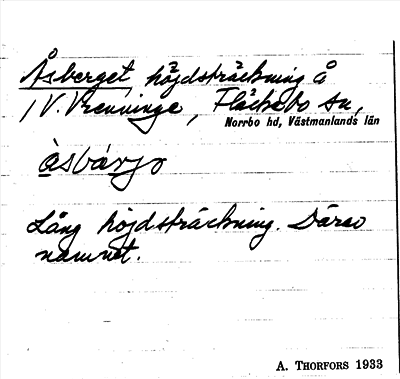 Åsberget, höjdsträckning å
1 V. Vrenninge, Fläckebo sn,
Norrbo hd, Västmanlands län
àsbárjo
Lång höjdsträckning. Därav
namnet.
A. THORFORS 1933